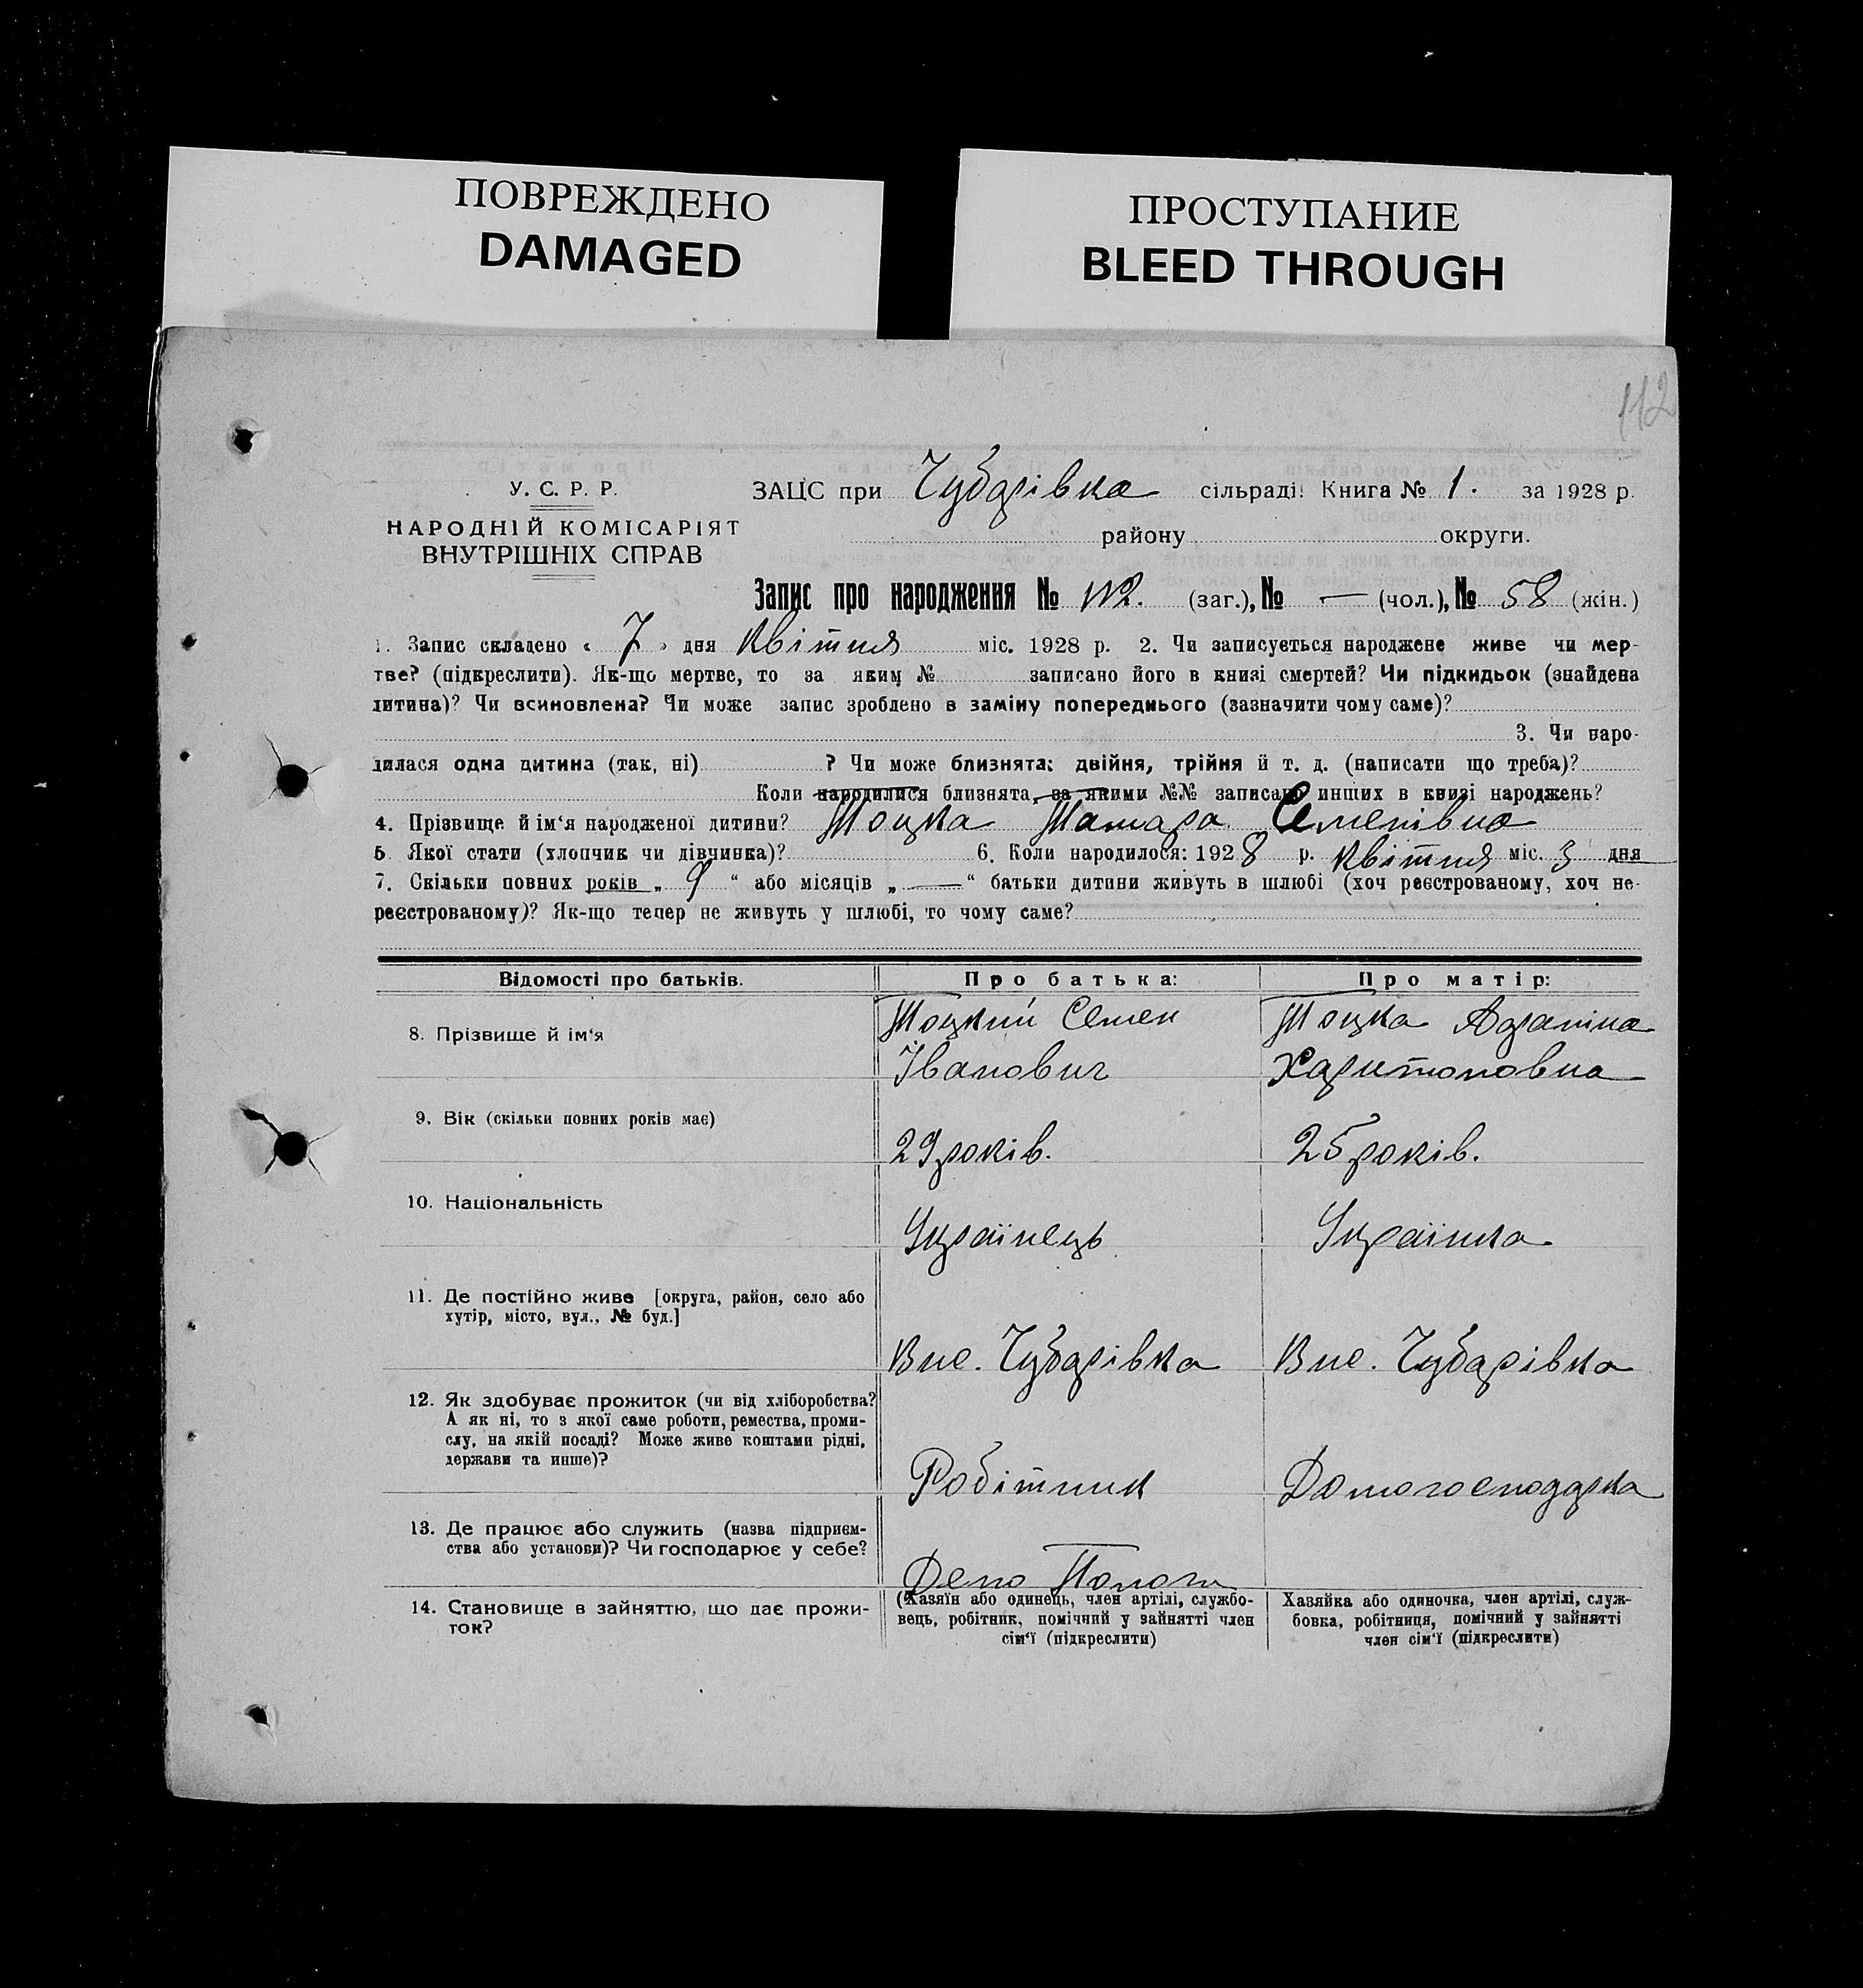 ПОВРЕЖДЕНО
DAMAGED
ПРОСТУПАНИЕ
BLEED THROUGH
112
У. С. Р. Р.
НАРОДНІЙ КОМІСАРІЯТ
ВНУТРІШНІХ СПРАВ
ЗАЦС при Чубарівка сільраді. Книга № 1. за 1928 р.
району округи.
Запис про народження № 112. (заг.), № — (чол.), № 58 (жін.)
1. Запис складено « 7 » дня Квітня міс. 1928 р. 2. Чи записується народжене живе чи мер-
тве? (підкреслити). Як-що мертве, то за яким № записано його в книзі смертей? Чи підкидьок (знайдена
дитина)? Чи всиновлена? Чи може запис зроблено в заміну попереднього (зазначити чому саме)?
3. Чи наро-
дилася одна дитина (так, ні) ? Чи може близнята: двійня, трійня й т. д. (написати що треба)?
Коли народилися близнята, за якими №№ записано инших в книзі народжень?
4. Прізвище й ім‘я народженої дитини? Тоцка Тамара Семенівна
5. Якої стати (хлопчик чи дівчинка)? 6. Коли народилося: 1928 р. Квітня міс. 3 дня
7. Скільки повних років „ 9 “ або місяців „ — “ батьки дитини живуть в шлюбі (хоч реєстрованому, хоч не-
реєстрованому)? Як-що тепер не живуть у шлюбі, то чому саме?
Відомості про батьків. Про батька: Про матір:
8. Прізвище й ім‘я Тоцкий Семен Тоцка
Іванович Харитоновна
9. Вік (скільки повних років має)
29 років. 25 років.
10. Національність
Українець Українка
11. Де постійно живе [округа, район, село або
хутір, місто, вул., № буд.]
Вис. Чубарівка Вис. Чубарівка
12. Як здобуває прожиток (чи від хліборобства?
А як ні, то з якої саме роботи, ремества, проми-
слу, на якій посаді? Може живе коштами рідні,
держави та инше)?
Робітник Домогосподарка
13. Де працює або служить (назва підприєм-
ства або установи)? Чи господарює у себе?
Депо Пологи
14. Становище в зайняттю, що дає прожи-
ток?
(Хазяїн або одинець, член артілі, службо-
вець, робітник, помічний у зайнятті член
сім‘ї (підкреслити)
Хазяйка або одиночка, член артілі, служ-
бовка, робітниця, помічний у зайнятті
член сім‘ї (підкреслити)